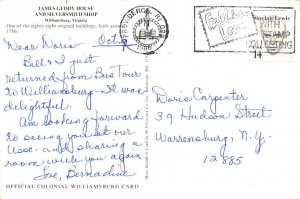 JAMES GEDDY HOUSE
AND SILVERSMITH SHOP
Williamsburg, Virginia
One of the eighty-eight original buildings, built around
1750.
Dear Doris - Oct
Bill & I just
returned from Bus Tour
to Williamsburg - It was
delightful.
Am looking forward
to seeing you at our
Asse. and sharing a
room with you again
Love, Bernadine
OFFICIAL COLONIAL WILLIAMSBURG CARD
PROVIDENCE, R.I.
PM
1986
WITH
STAMP
COLLECTING
Sinclair Lewis
14
Doris Carpenter
39 Hudson Street
Warrensburg, N.Y.
12885